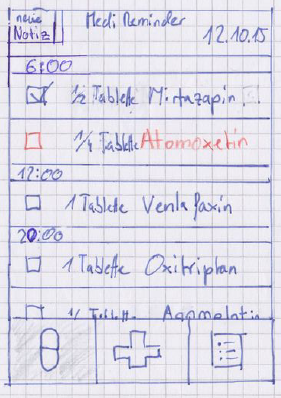 neue Notiz
Medi Reminder
12.10.15
6:00
1/2 Tablette Mirtazapin
1/4 Tablette Atomoxetin
12:00
1 Tablette Venlafaxin
20:00
1 Tablette Oxitriptan
1/ Tablett